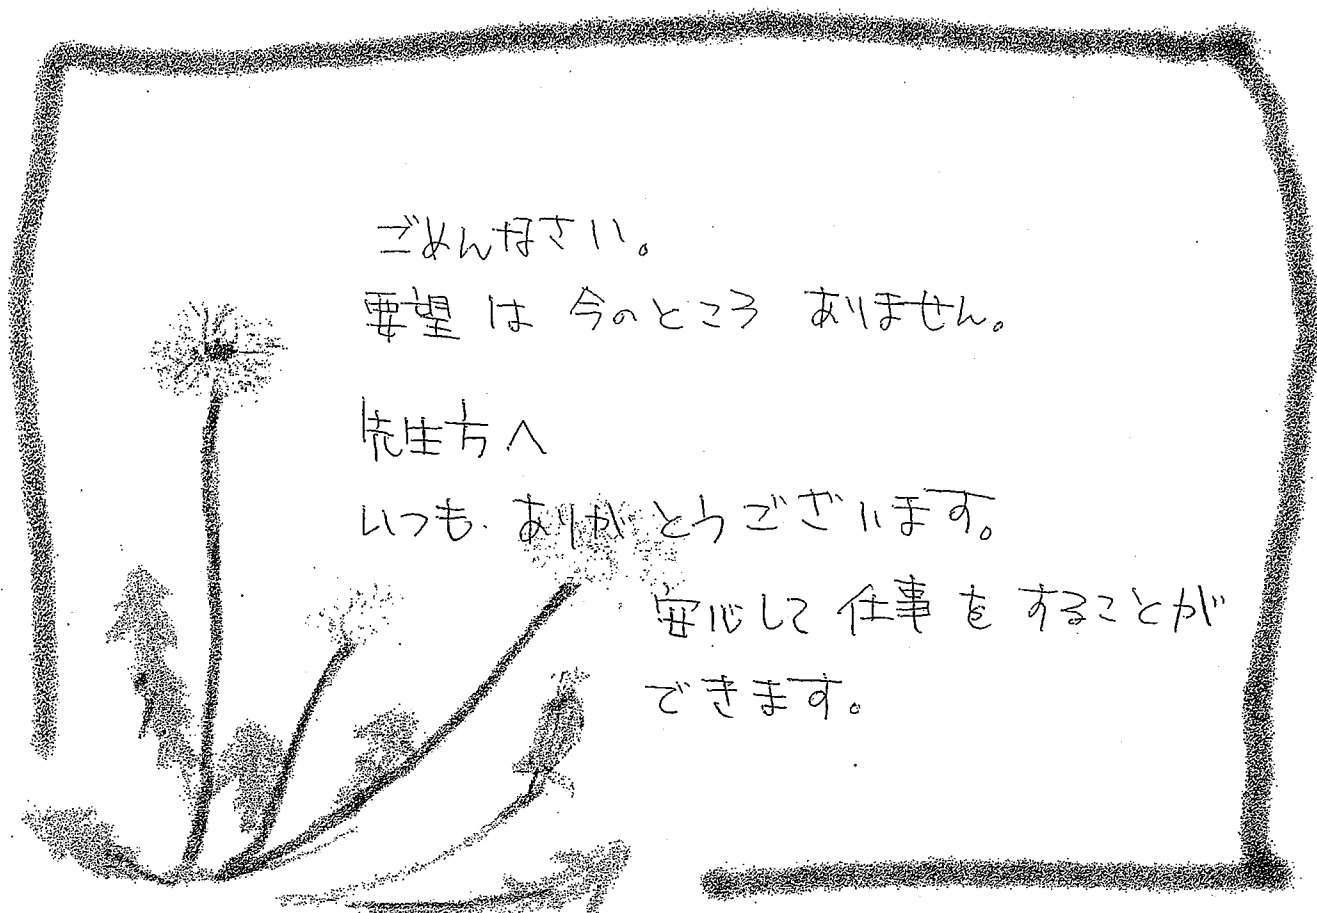 ごめんなさい。
要望は今のところありません。
先生方へ
いつもありがとうございます。
安心して仕事をすることが
できます。